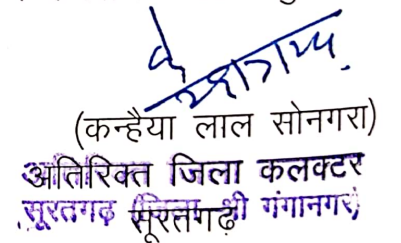 (कन्हैया लाल सोनगरा)
अतिरिक्त जिला कलक्टर
सूरतगढ़ श्री गंगानगर)
सूरतगढ़